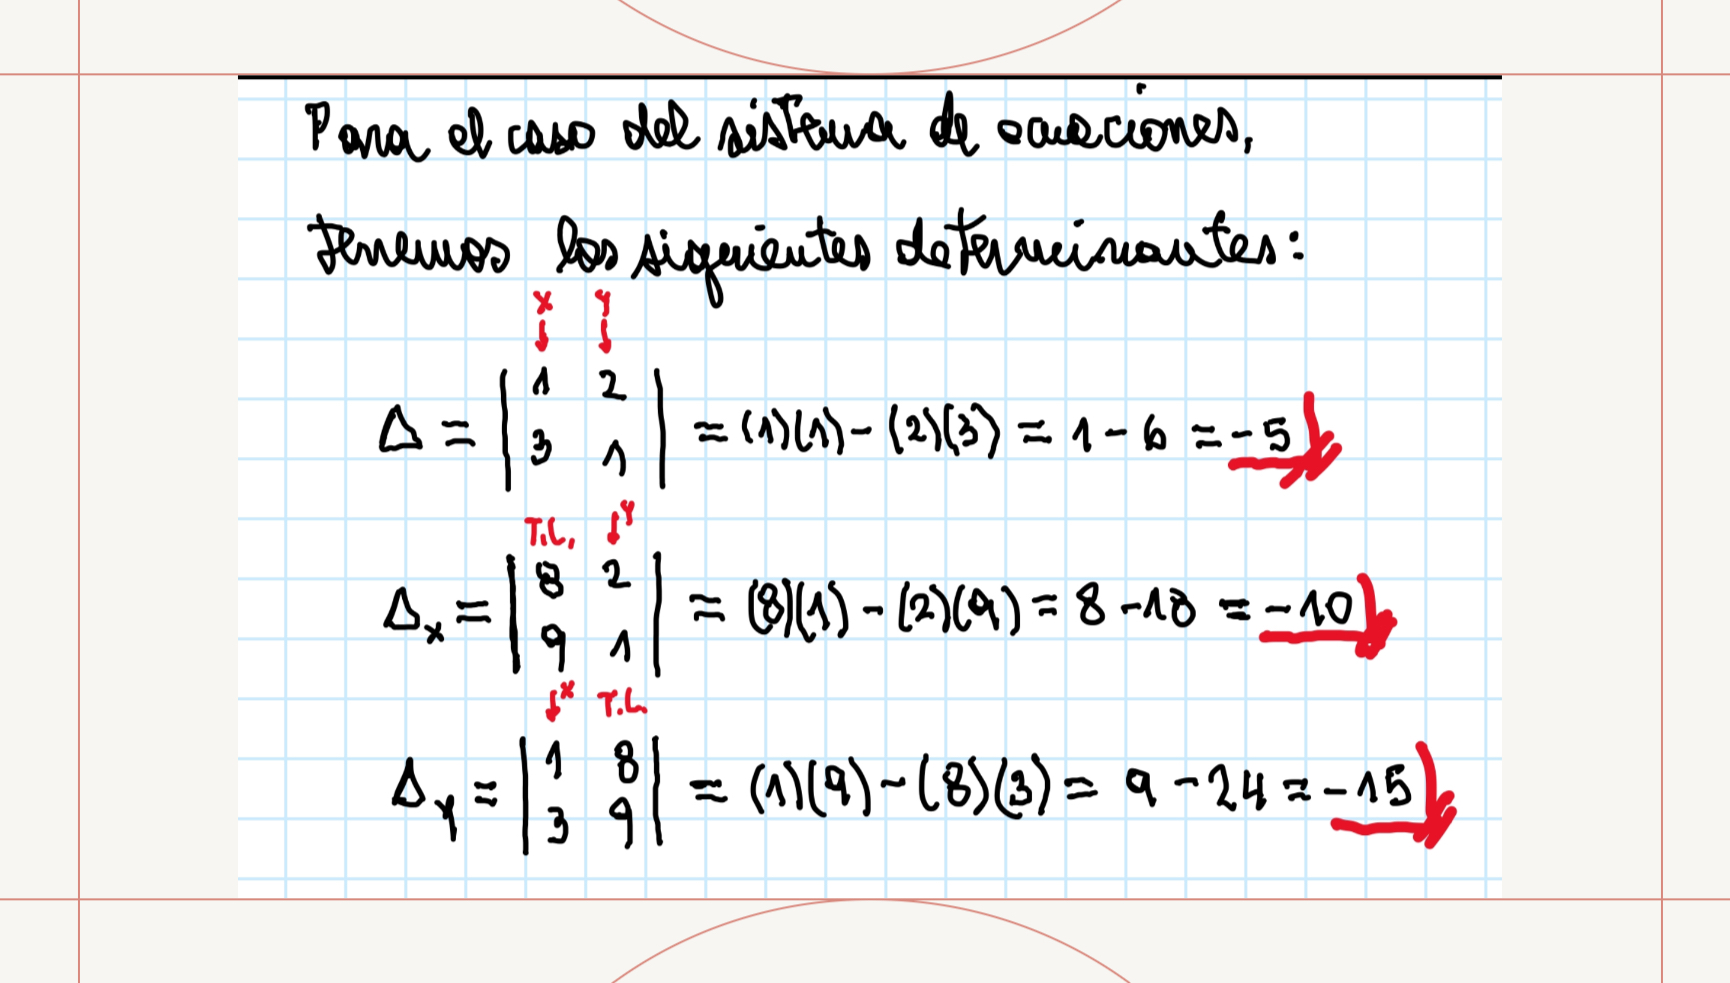 Para el caso del sistema de ecuaciones,
tenemos los siguientes determinantes:
x y
Δ = | 1 2 | = (1)(1) - (2)(3) = 1 - 6 = -5
| 3 1 |
T.I. y
Δx = | 8 2 | = (8)(1) - (2)(9) = 8 - 18 = -10
| 9 1 |
x T.I.
Δy = | 1 8 | = (1)(9) - (8)(3) = 9 - 24 = -15
| 3 9 |